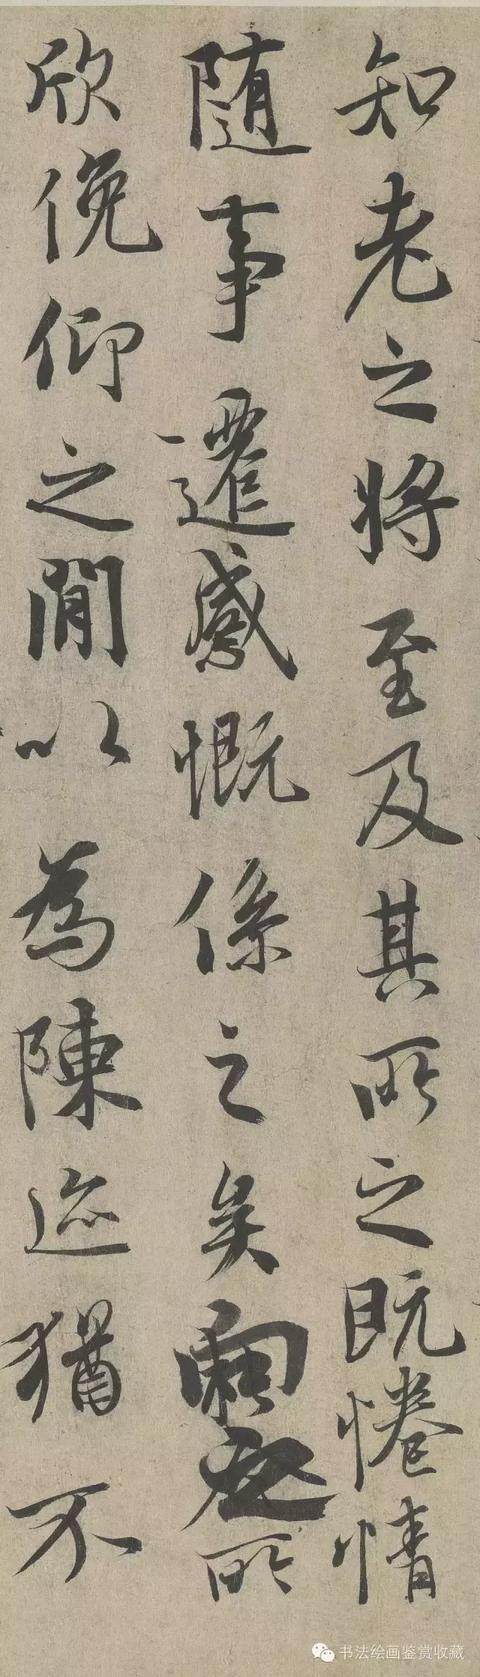 知老之將至及其所之既惓情
随事遷感慨係之矣向之所
欣俛仰之閒以為陳迹猶不
书法绘画鉴赏收藏